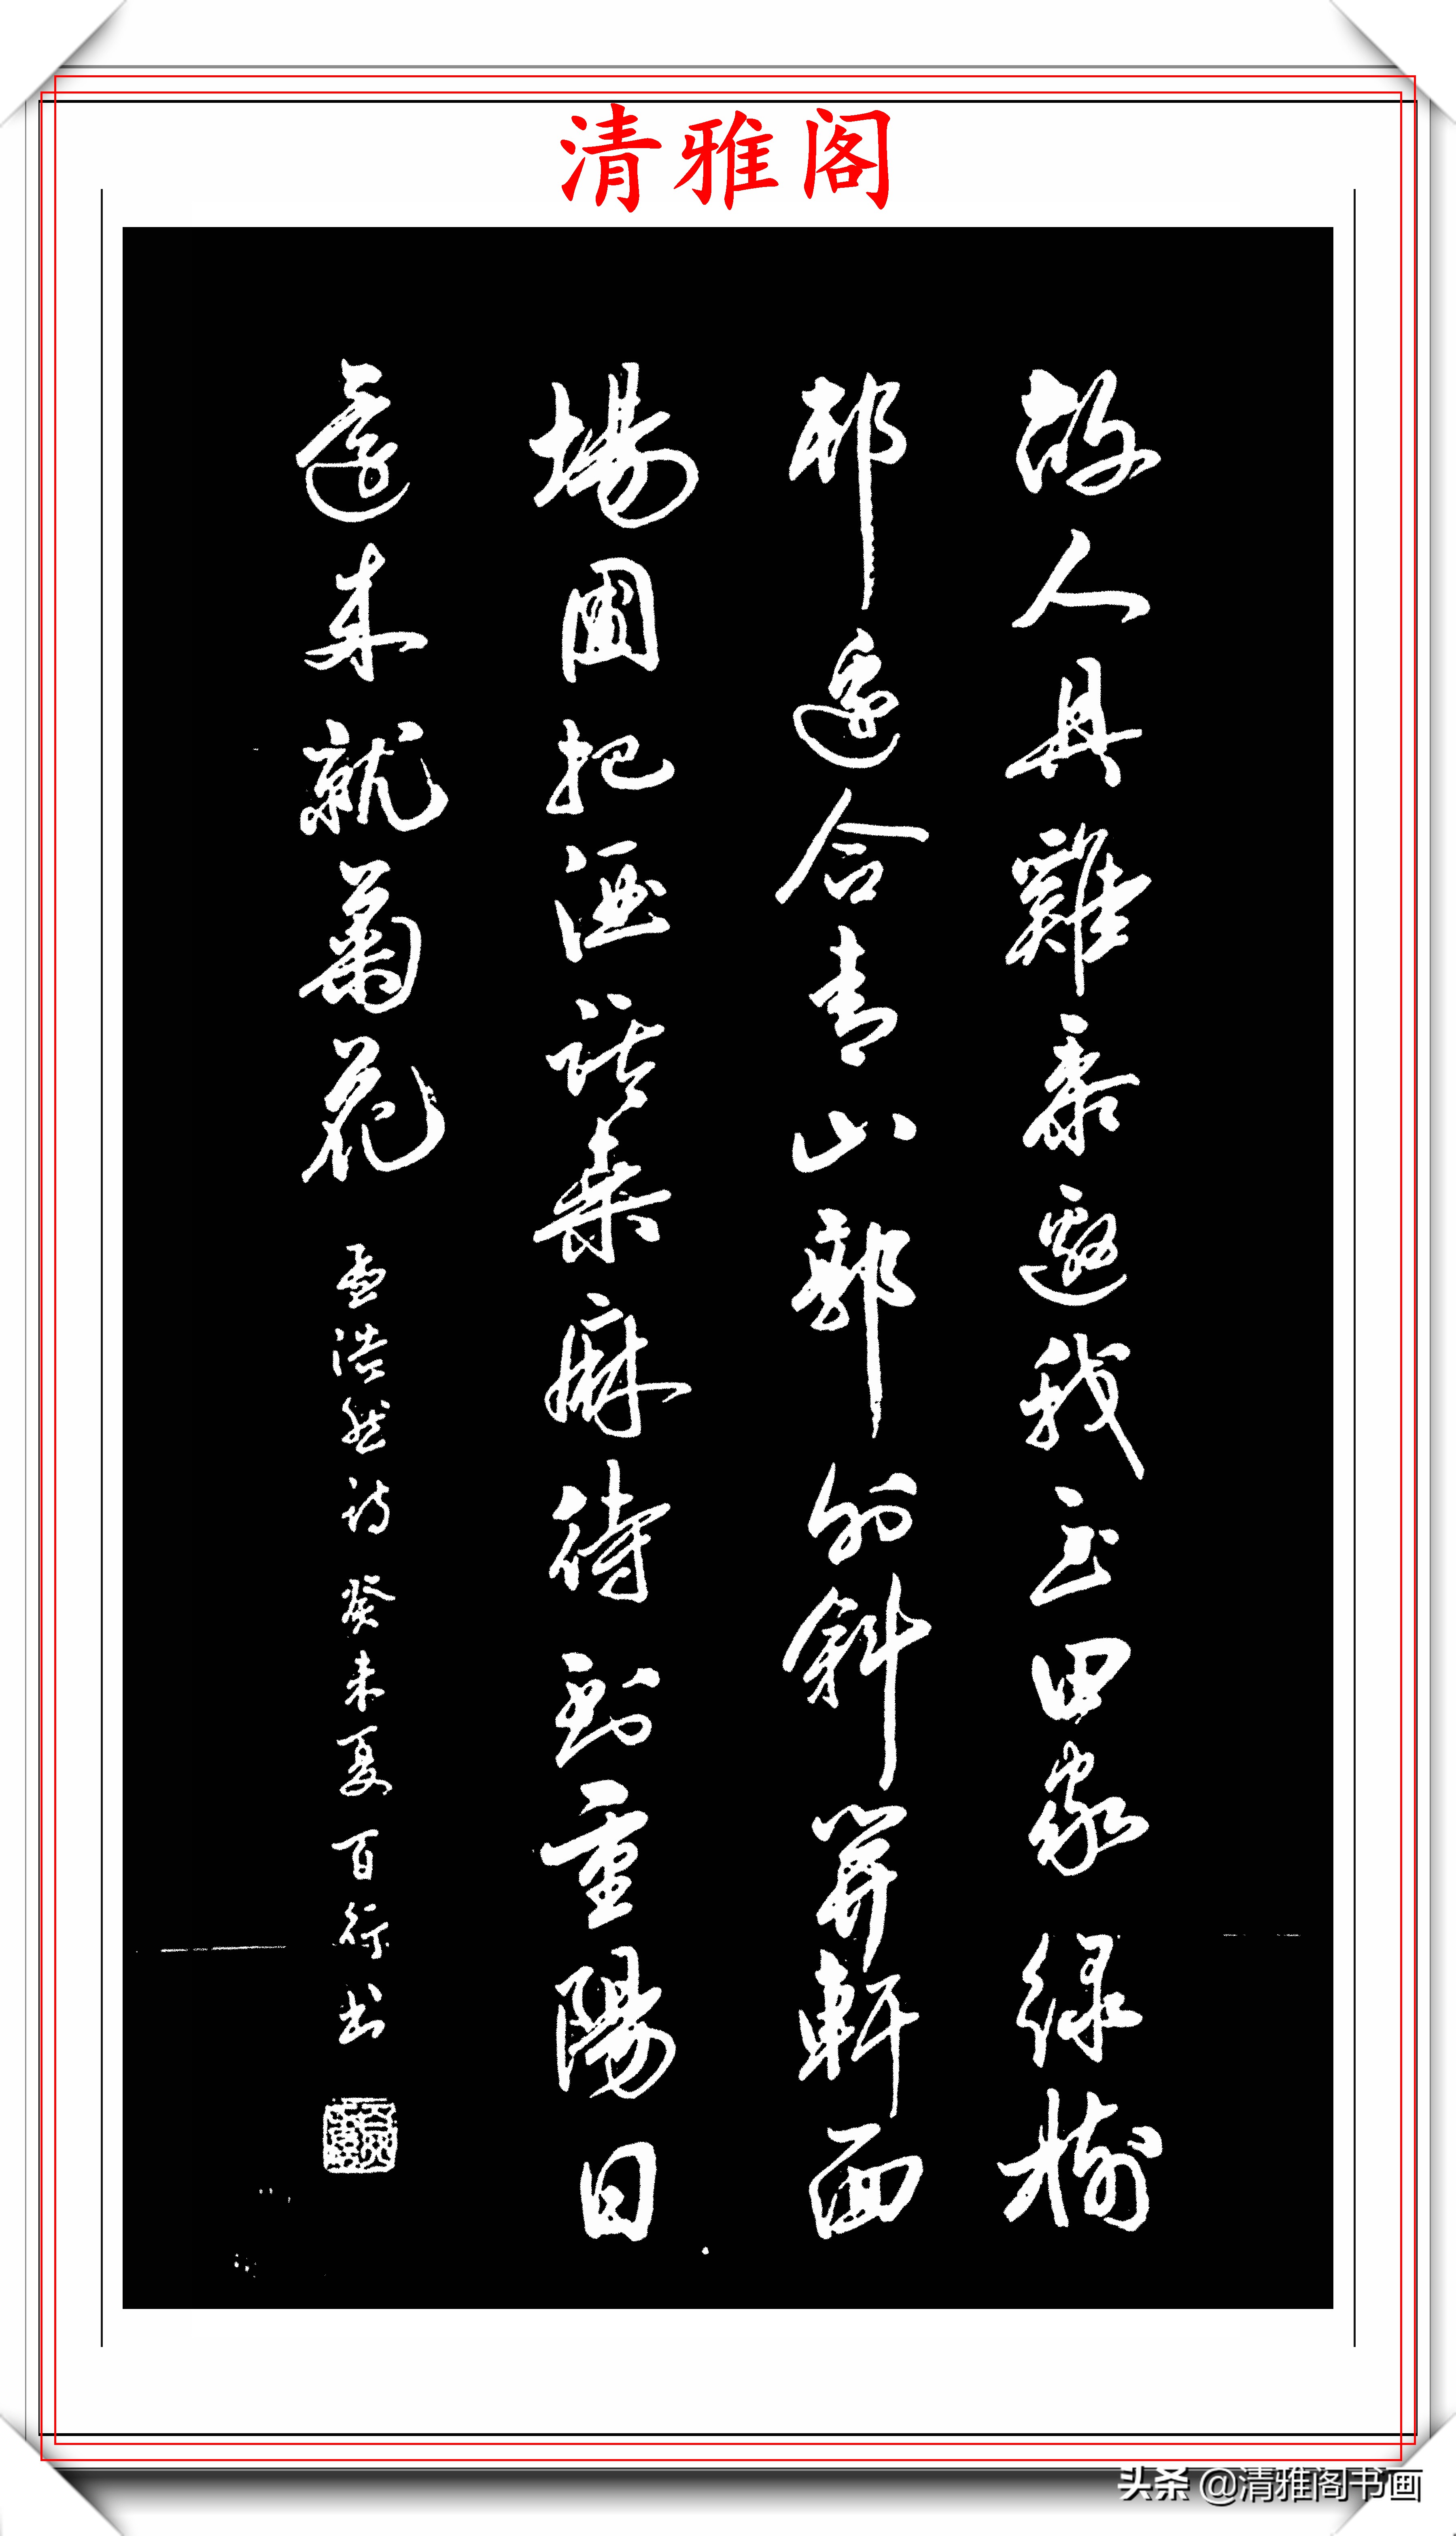 清雅阁
故人具雞黍邀我至田家緑樹
邨邊合青山郭外斜開軒面
場圃把酒話桑麻待到重陽日
還來就菊花
孟浩然诗癸未夏百行书
头条 @清雅阁书画